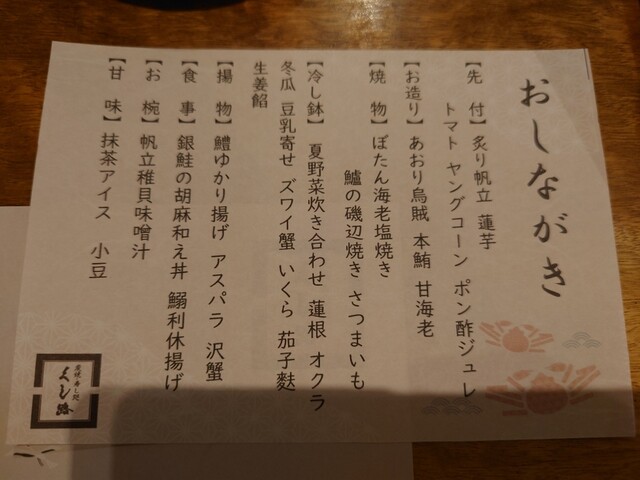 おしながき
【先　付】炙り帆立 蓮芋
トマト ヤングコーン ポン酢ジュレ
【お造り】あおり烏賊 本鮪 甘海老
【焼　物】ぼたん海老塩焼き
鱸の磯辺焼き さつまいも
【冷し鉢】 夏野菜炊き合わせ 蓮根 オクラ
冬瓜 豆乳寄せ ズワイ蟹 いくら 茄子麩
生姜餡
【揚　物】鱧ゆかり揚げ アスパラ 沢蟹
【食　事】銀鮭の胡麻和え丼 鰯利休揚げ
【お　椀】帆立稚貝味噌汁
【甘　味】抹茶アイス 小豆
くし路